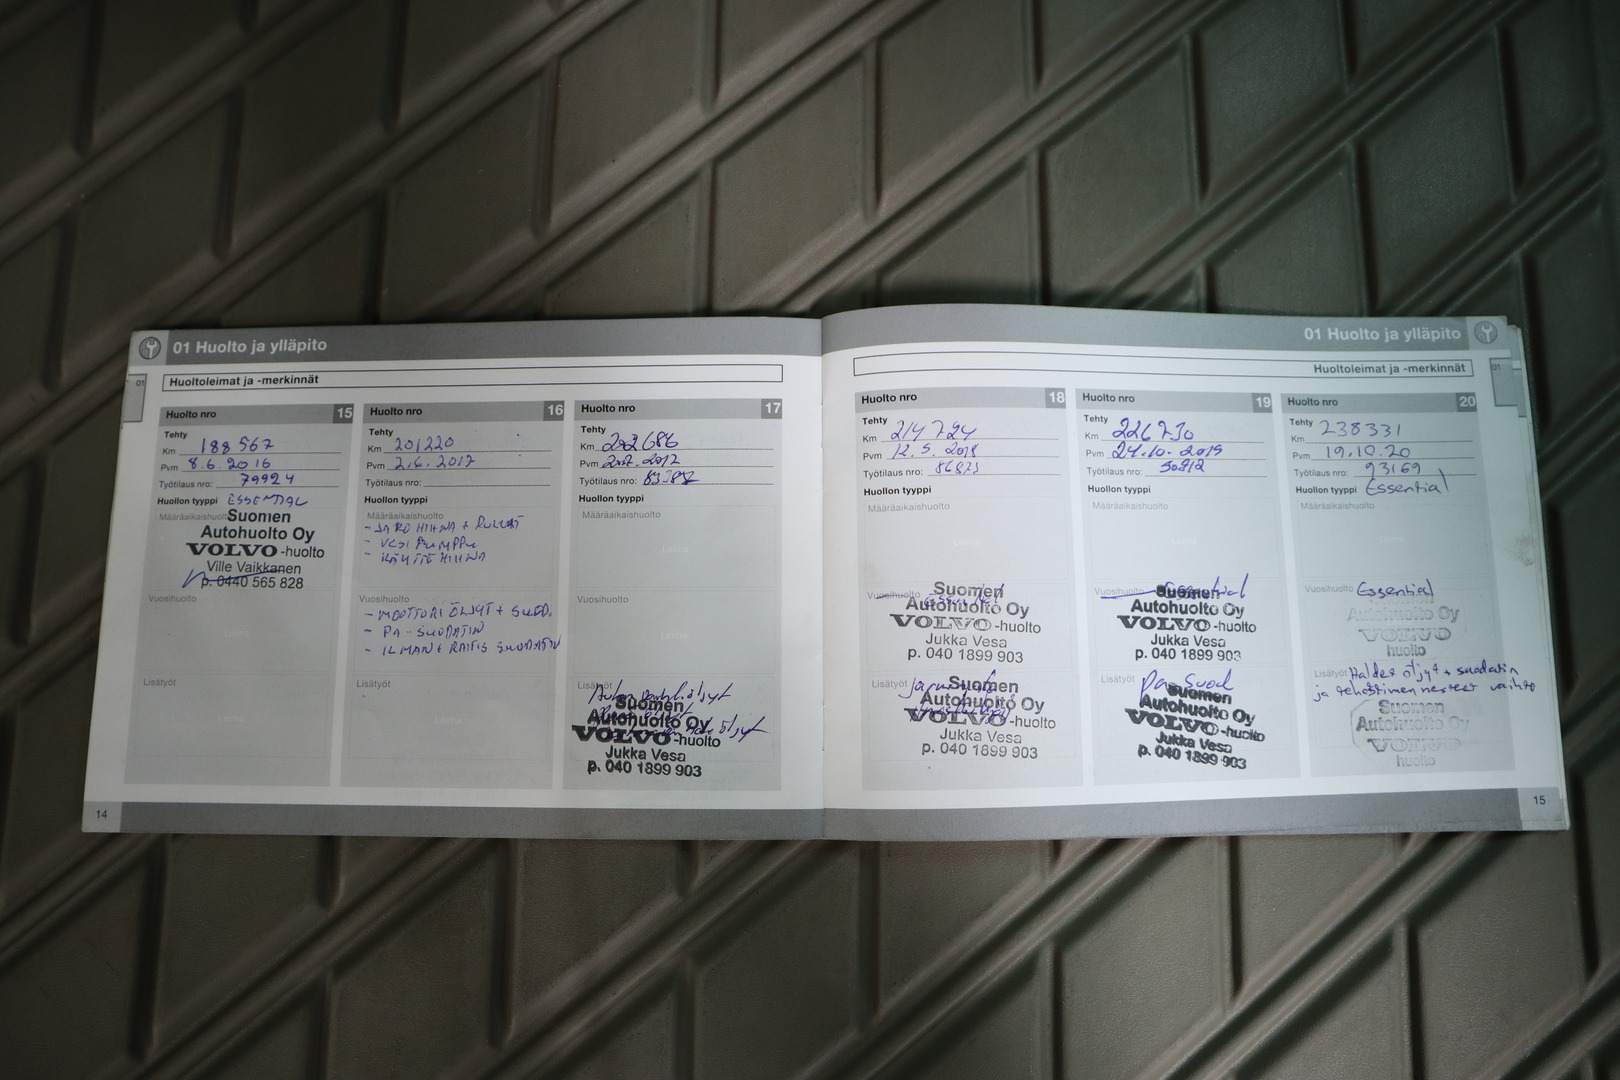 01 Huolto ja ylläpito
01
Huoltoleimat ja -merkinnät
Huolto nro 15
Tehty
Km 188 567
Pvm 8.6.2016
Työtilaus nro: 79924
Huollon tyyppi ESSENTIAL
Määräaikaishuolto
Suomen
Autohuolto Oy
VOLVO-huolto
Ville Vaikkanen
p. 0440 565 828
Vuosihuolto
Leima
Lisätyöt
Leima
Huolto nro 16
Tehty
Km 201220
Pvm 2.6.2017
Työtilaus nro:
Huollon tyyppi
Määräaikaishuolto
- JAKO HIHNA + RULLAT
- VESI PUMPPU
- KÄYTTÖ HIHNA
Vuosihuolto
- MOOTTORI ÖLJYT + SUOD.
- PA - SUODATIN
- ILMAN + RAITIS SUODATIN
Lisätyöt
Leima
Huolto nro 17
Tehty
Km 202686
Pvm 2017
Työtilaus nro:
Huollon tyyppi
Määräaikaishuolto
Leima
Vuosihuolto
Leima
Lisätyöt
Suomen
Autohuolto Oy
VOLVO-huolto
Jukka Vesa
p. 040 1899 903
14
01 Huolto ja ylläpito
01
Huoltoleimat ja -merkinnät
Huolto nro 18
Tehty
Km 214724
Pvm 12.5.2018
Työtilaus nro: 86873
Huollon tyyppi
Määräaikaishuolto
Leima
Vuosihuolto
Essential
Suomen
Autohuolto Oy
VOLVO-huolto
Jukka Vesa
p. 040 1899 903
Lisätyöt
Suomen
Autohuolto Oy
VOLVO-huolto
Jukka Vesa
p. 040 1899 903
Huolto nro 19
Tehty
Km 226730
Pvm 24.10.2019
Työtilaus nro: 90912
Huollon tyyppi
Määräaikaishuolto
Leima
Vuosihuolto
Essential
Suomen
Autohuolto Oy
VOLVO-huolto
Jukka Vesa
p. 040 1899 903
Lisätyöt Pa-Suod
Suomen
Autohuolto Oy
VOLVO-huolto
Jukka Vesa
p. 040 1899 903
Huolto nro 20
Tehty
Km 238331
Pvm 19.10.20
Työtilaus nro: 93169
Huollon tyyppi Essential
Määräaikaishuolto
Leima
Vuosihuolto Essential
Suomen
Autohuolto Oy
VOLVO
huolto
Lisätyöt Haldex öljyt + suodatin
ja tehostimen nesteet vaihto
Suomen
Autohuolto Oy
VOLVO
huolto
15